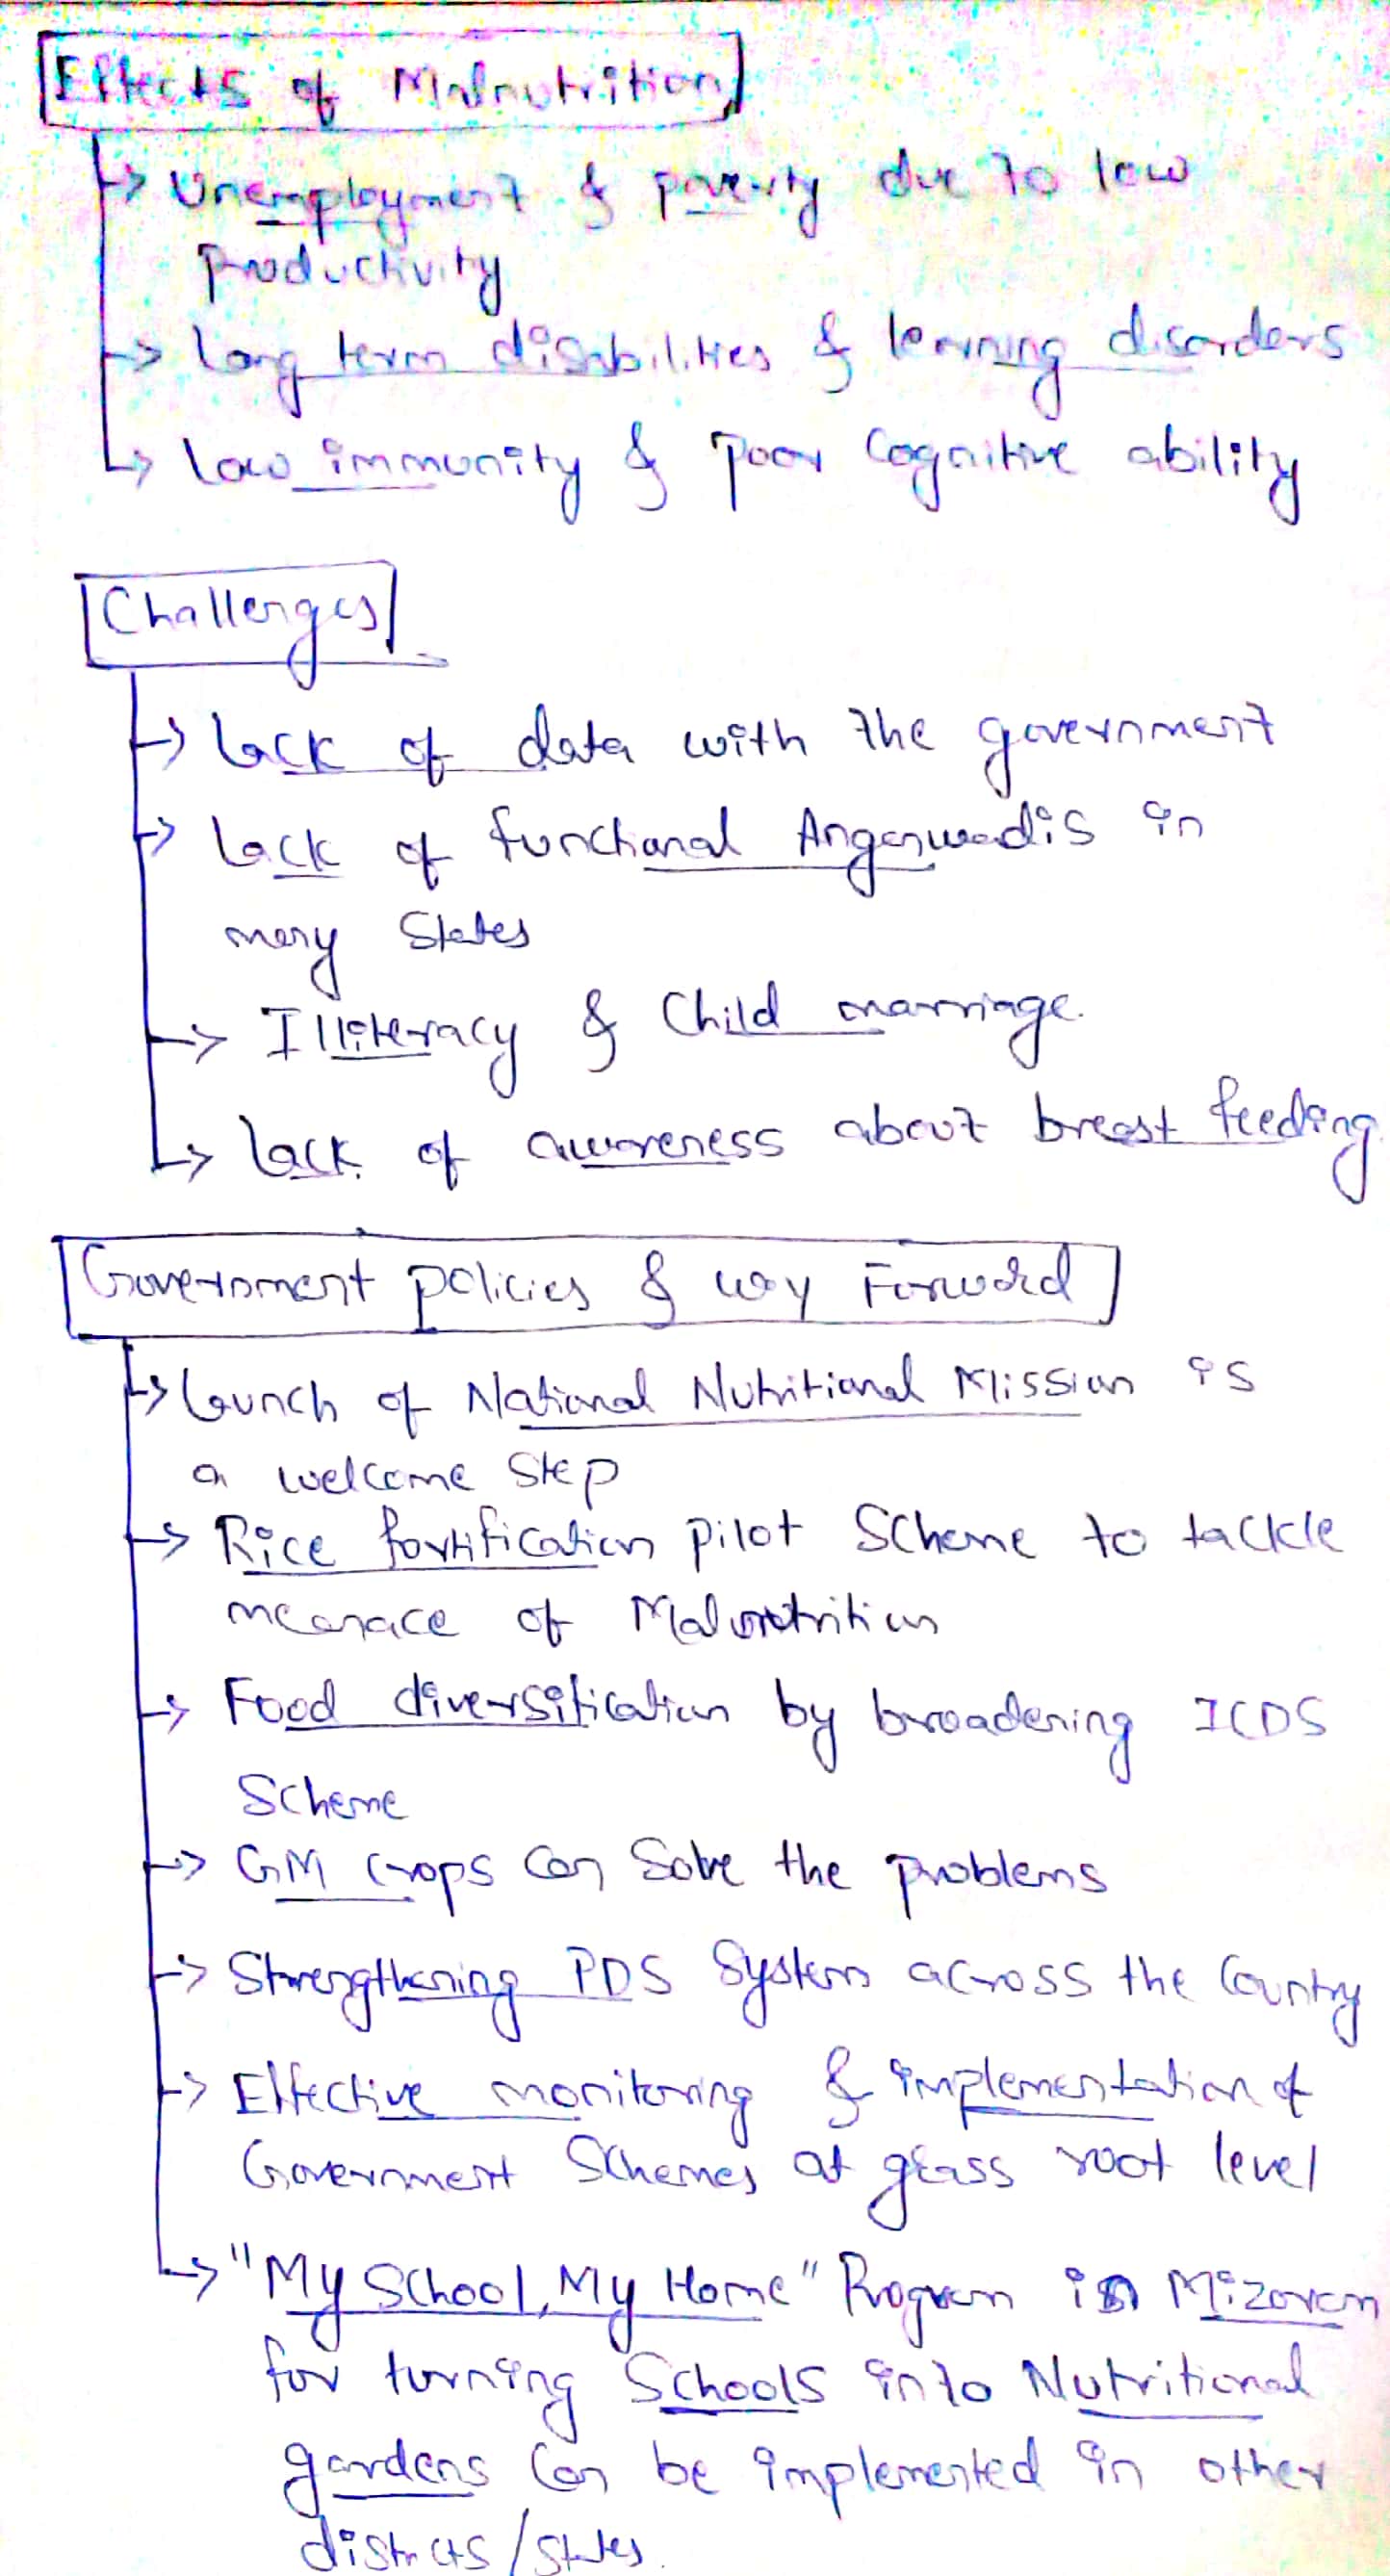 Effects of Malnutrition
→ Unemployment & poverty due to low
productivity
→ Long term disabilities & learning disorders
→ Low immunity & poor Cognitive ability
Challenges
→ Lack of data with the government
→ Lack of functional Anganwadis in
many States
→ Illiteracy & Child marriage.
→ Lack of awareness about breast feeding
Government policies & way Forward
→ Launch of National Nutritional Mission is
a welcome step
→ Rice fortification pilot Scheme to tackle
meanace of Malnutrition
→ Food diversification by broadening ICDS
Scheme
→ GM Crops can Solve the problems
→ Strengthening PDS System across the Country
→ Effective monitoring & implementation of
Government Schemes at grass root level
→ "My School, My Home" Program in Mizoram
for turning Schools into Nutritional
gardens can be implemented in other
districts/states.